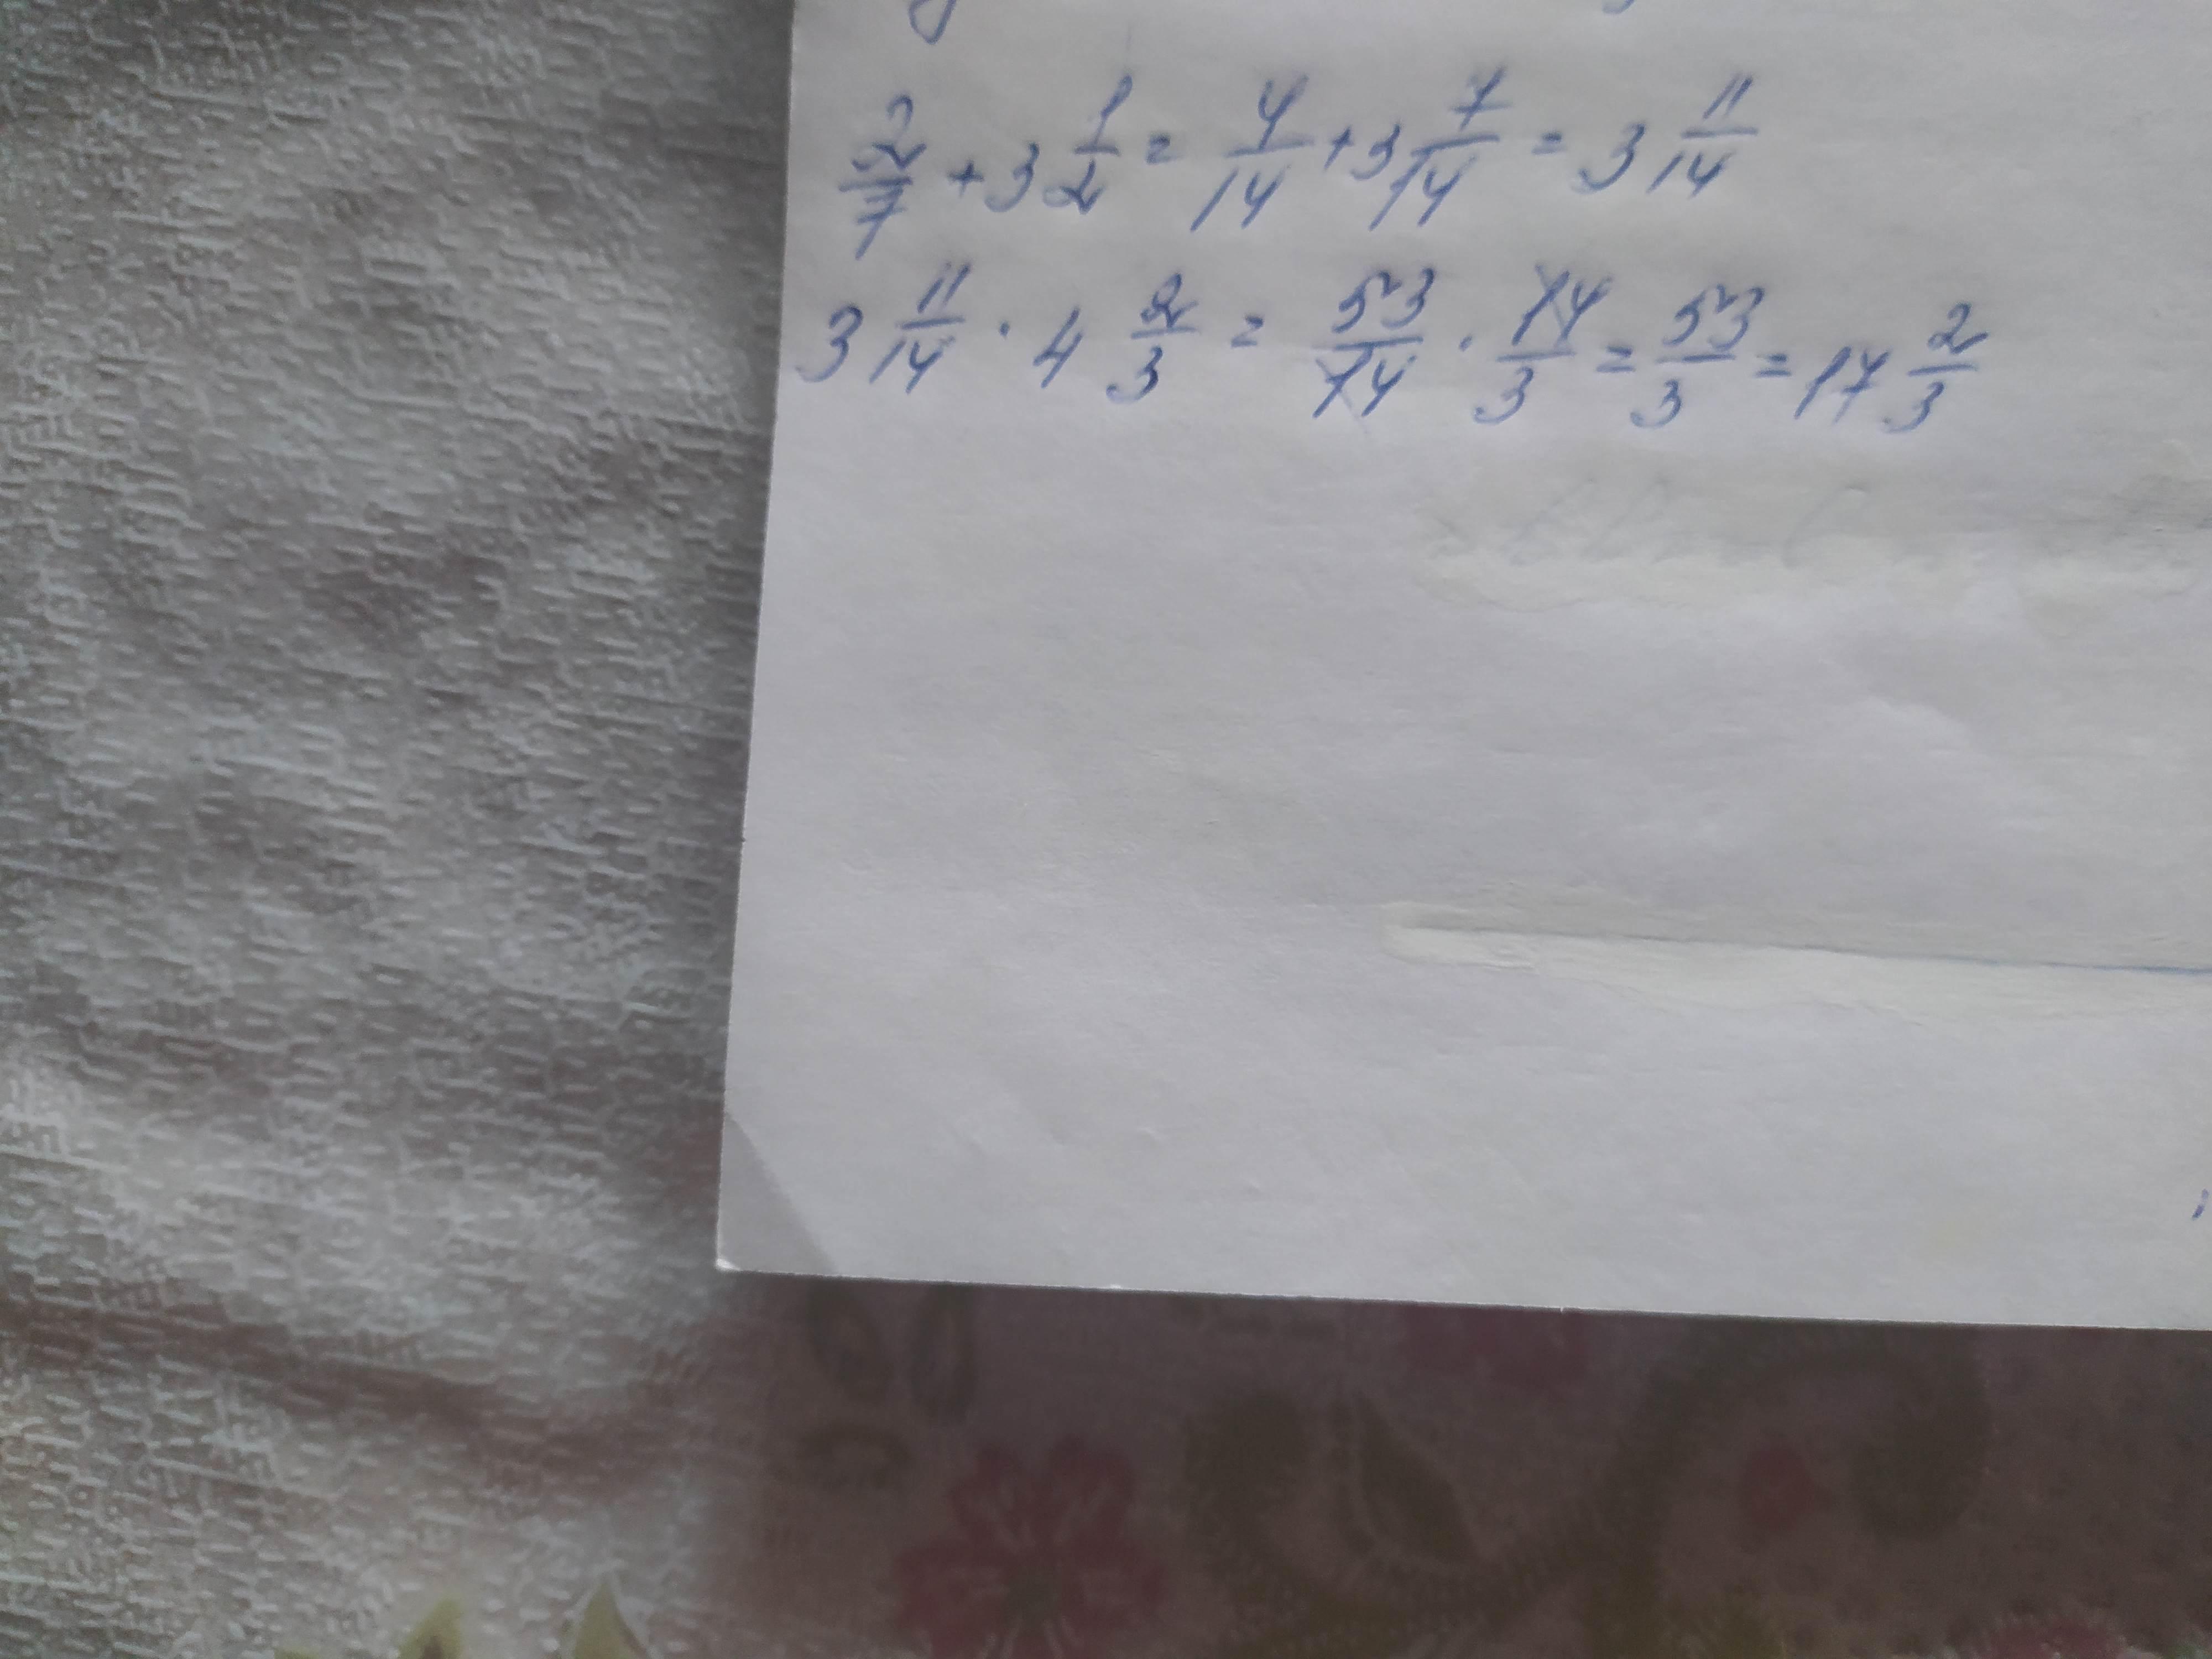 2/7 + 3 1/2 = 4/14 + 3 7/14 = 3 11/14
3 11/14 · 4 2/3 = 53/14 · 14/3 = 53/3 = 17 2/3